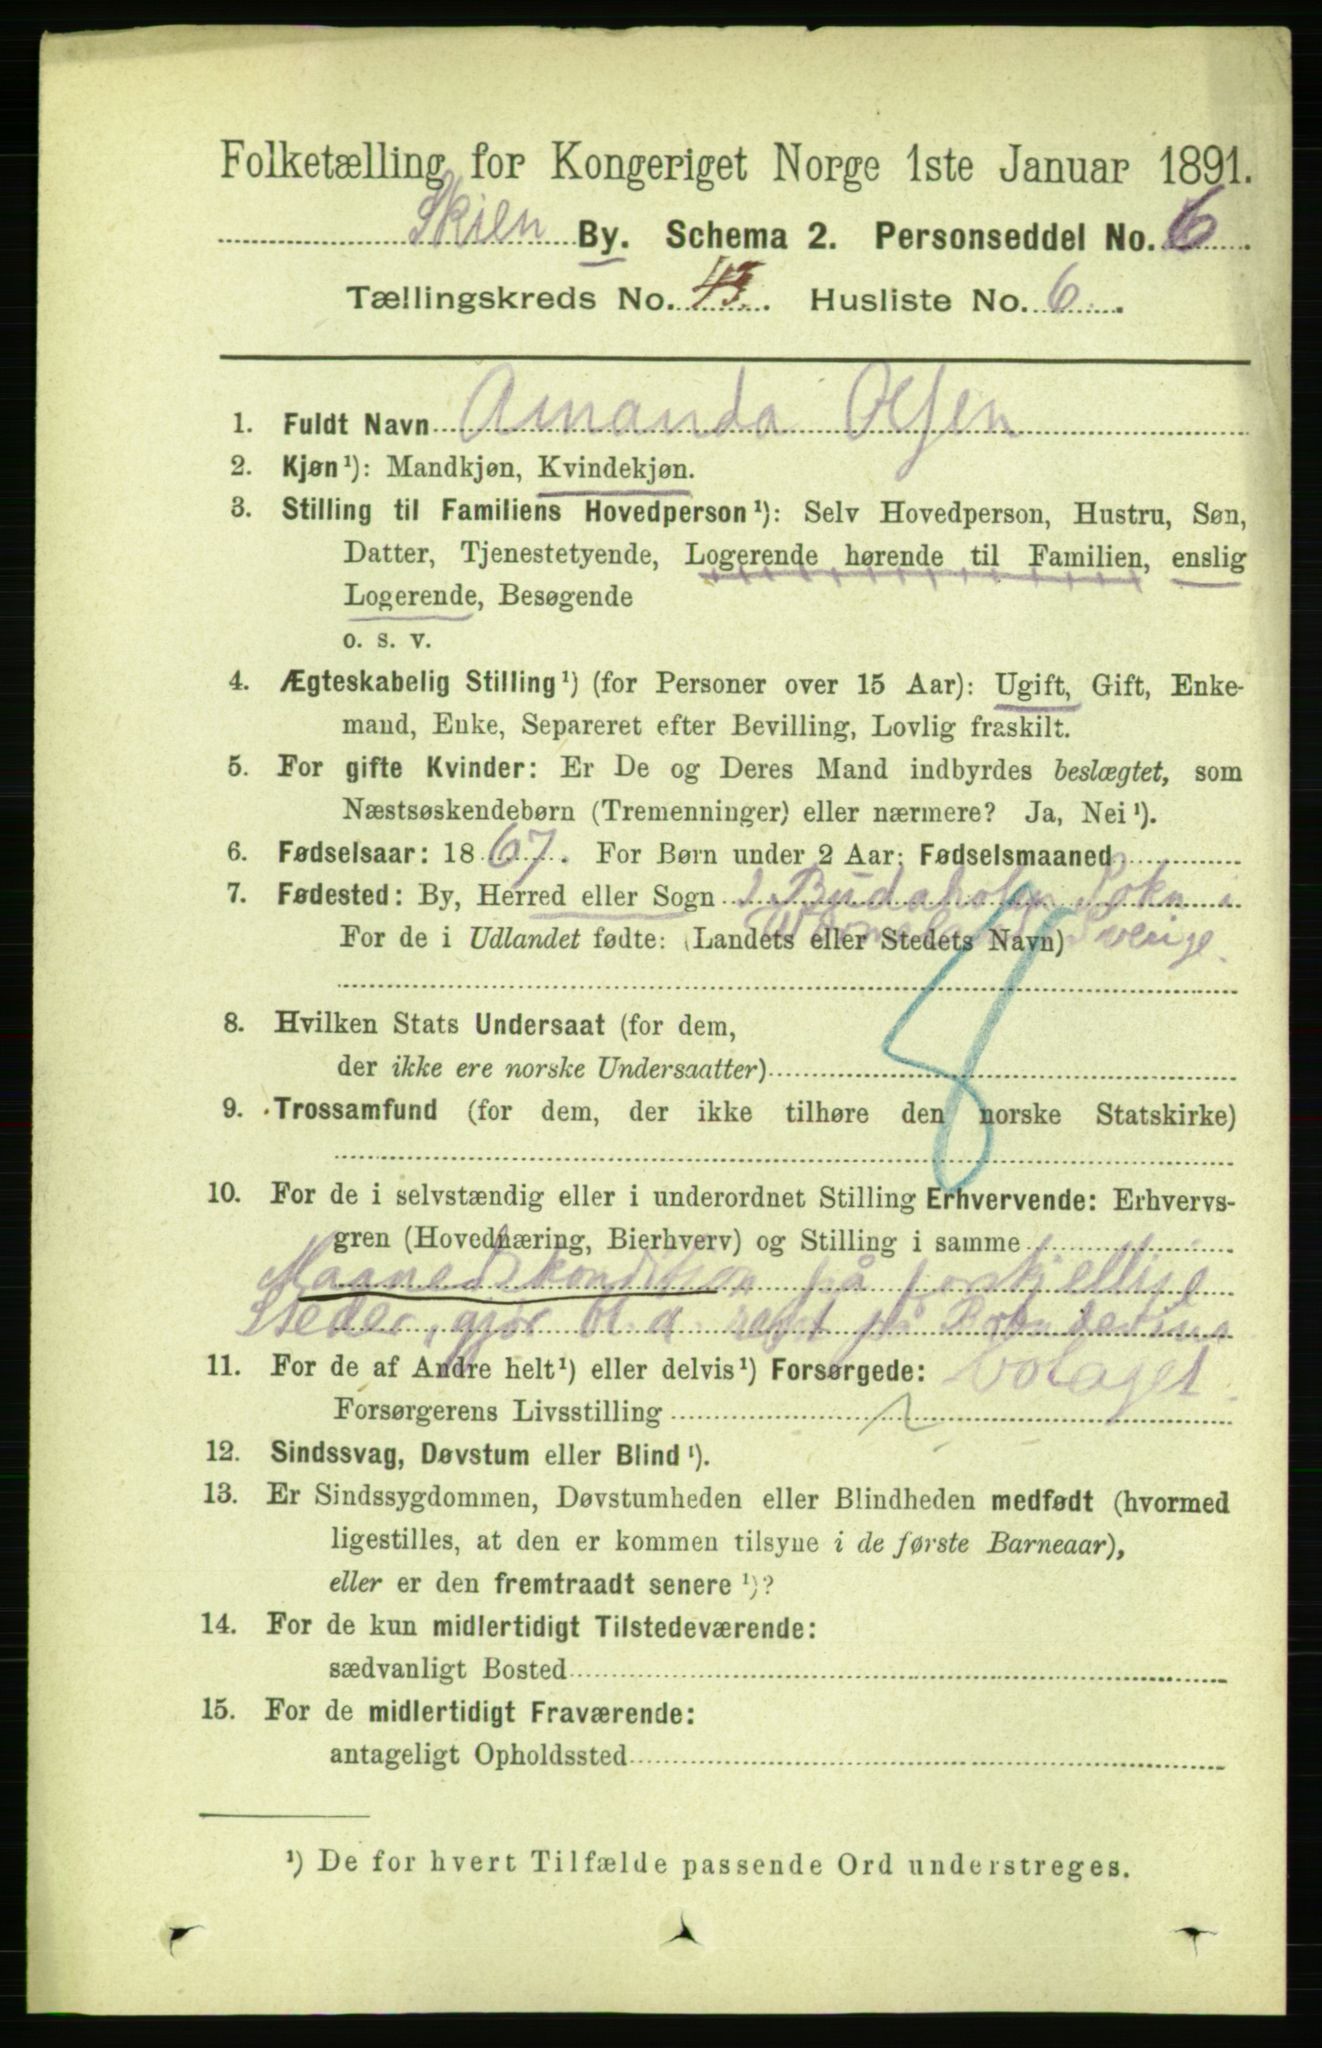 Folketælling for Kongeriget Norge 1ste Januar 1891.
Skien By. Schema 2. Personseddel No. 6.
Tællingskreds No. 43. Husliste No. 6.
1. Fuldt Navn Amanda Olsen
2. Kjøn¹): Mandkjøn, Kvindekjøn.
3. Stilling til Familiens Hovedperson¹): Selv Hovedperson, Hustru, Søn,
Datter, Tjenestetyende, Logerende hørende til Familien, enslig
Logerende, Besøgende
o. s. v.
4. Ægteskabelig Stilling¹) (for Personer over 15 Aar): Ugift, Gift, Enke-
mand, Enke, Separeret efter Bevilling, Lovlig fraskilt.
5. For gifte Kvinder: Er De og Deres Mand indbyrdes beslægtet, som
Næstsøskendebørn (Tremenninger) eller nærmere? Ja, Nei¹).
6. Fødselsaar: 1867. For Børn under 2 Aar: Fødselsmaaned
7. Fødested: By, Herred eller Sogn Sokn i
For de i Udlandet fødte: (Landets eller Stedets Navn) Sverige.
8. Hvilken Stats Undersaat (for dem,
der ikke ere norske Undersaatter)
9. Trossamfund (for dem, der ikke tilhøre den norske Statskirke)
10. For de i selvstændig eller i underordnet Stilling Erhvervende: Erhvervs-
gren (Hovednæring, Bierhverv) og Stilling i samme
på forskjellige
Steder, gjør bl. a. rent på
11. For de af Andre helt¹) eller delvis¹) Forsørgede: bolaget.
Forsørgerens Livsstilling
12. Sindssvag, Døvstum eller Blind¹).
13. Er Sindssygdommen, Døvstumheden eller Blindheden medfødt (hvormed
ligestilles, at den er kommen tilsyne i de første Barneaar),
eller er den fremtraadt senere¹)?
14. For de kun midlertidigt Tilstedeværende:
sædvanligt Bosted
15. For de midlertidigt Fraværende:
antageligt Opholdssted
¹) De for hvert Tilfælde passende Ord understreges.